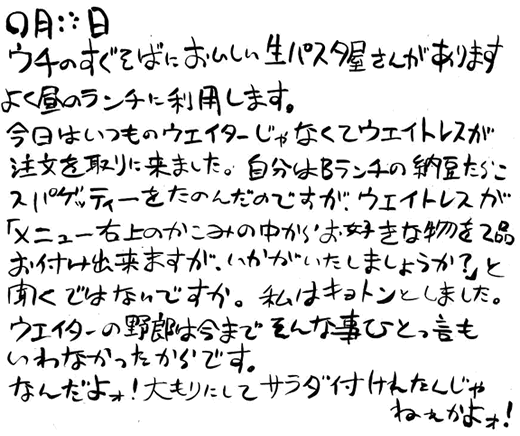 ○月∴日
ウチのすぐそばにおいしい生パスタ屋さんがあります
よく昼のランチに利用します。
今日はいつものウエイターじゃなくてウエイトレスが
注文を取りに来ました。自分はBランチの納豆たらこ
スパゲッティーをたのんだのですが、ウエイトレスが
「メニュー右上のかこみの中からお好きな物を2品
お付け出来ますが、いかがいたしましょうか?」と
聞くではないですか。私はキョトンとしました。
ウエイターの野郎は今までそんな事ひとっ言も
いわなかったからです。
なんだよォ!大もりにしてサラダ付けれたんじゃ
ねェかよォ!